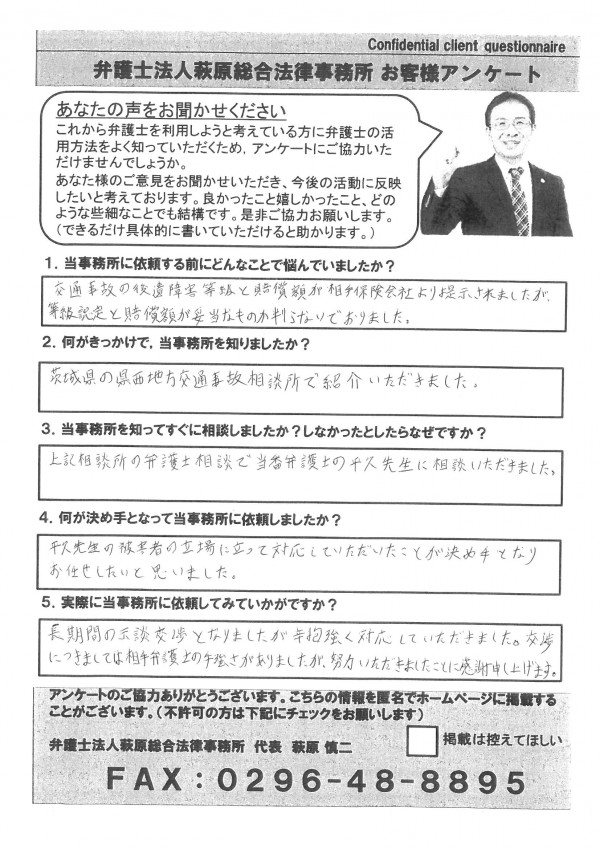 Confidential client questionnaire
弁護士法人萩原総合法律事務所 お客様アンケート
あなたの声をお聞かせください
これから弁護士を利用しようと考えている方に弁護士の活
用方法をよく知っていただくため，アンケートにご協力いた
だけませんでしょうか。
あなた様のご意見をお聞かせいただき、今後の活動に反映
したいと考えております。良かったこと嬉しかったこと、どの
ような些細なことでも結構です。是非ご協力お願いします。
（できるだけ具体的に書いていただけると助かります。）
１．当事務所に依頼する前にどんなことで悩んでいましたか？
交通事故の後遺障害等級と賠償額が相手保険会社より提示されましたが、
等級認定と賠償額が妥当なものか判らないでおりました。
２．何がきっかけで，当事務所を知りましたか？
茨城県の県西地方交通事故相談所で紹介いただきました。
３．当事務所を知ってすぐに相談しましたか？しなかったとしたらなぜですか？
上記相談所の弁護士相談で当番弁護士の平久先生に相談いただきました。
４．何が決め手となって当事務所に依頼しましたか？
平久先生の被害者の立場に立って対応していただいたことが決め手となり
お任せしたいと思いました。
５．実際に当事務所に依頼してみていかがですか？
長期間の示談交渉となりましたが手強く対応していただきました。交渉
につきましては相手弁護士の手強さがありましたが、努力いただきましたことに感謝申し上げます。
アンケートのご協力ありがとうございます。こちらの情報を匿名でホームページに掲載する
ことがございます。（不許可の方は下記にチェックをお願いします）
弁護士法人萩原総合法律事務所 代表 萩原 慎二
掲載は控えてほしい
FAX：0296-48-8895